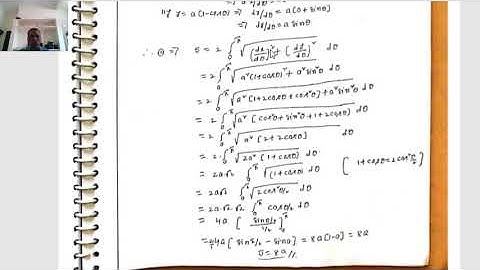 y = a(1-cosθ) ⇒ dy/dθ = a(0+sinθ)
⇒ dy/dθ = a sinθ
∴ ① ⇒ S = 2 ∫₀^π √((dx/dθ)² + (dy/dθ)²) dθ
= 2 ∫₀^π √(a²(1+cosθ)² + a²sin²θ) dθ
= 2 ∫₀^π √(a²(1+2cosθ+cos²θ)+a²sin²θ) dθ
= 2 ∫₀^π √(a²[cos²θ+sin²θ+1+2cosθ]) dθ
= 2 ∫₀^π √(a²[2+2cosθ]) dθ
= 2·∫₀^π √(2a²[1+cosθ]) dθ
= 2a√2 ∫₀^π √(1+cosθ) dθ [1+cosθ=2cos²θ/2]
= 2a√2 ∫₀^π √(2cos²θ/2) dθ
= 2a·√2·√2 ∫₀^π cosθ/2 dθ
= 4a [sinθ/2 / 1/2]₀^π
[sinπ/2 - sin0] = 8a[1-0] = 8a
S = 8a //